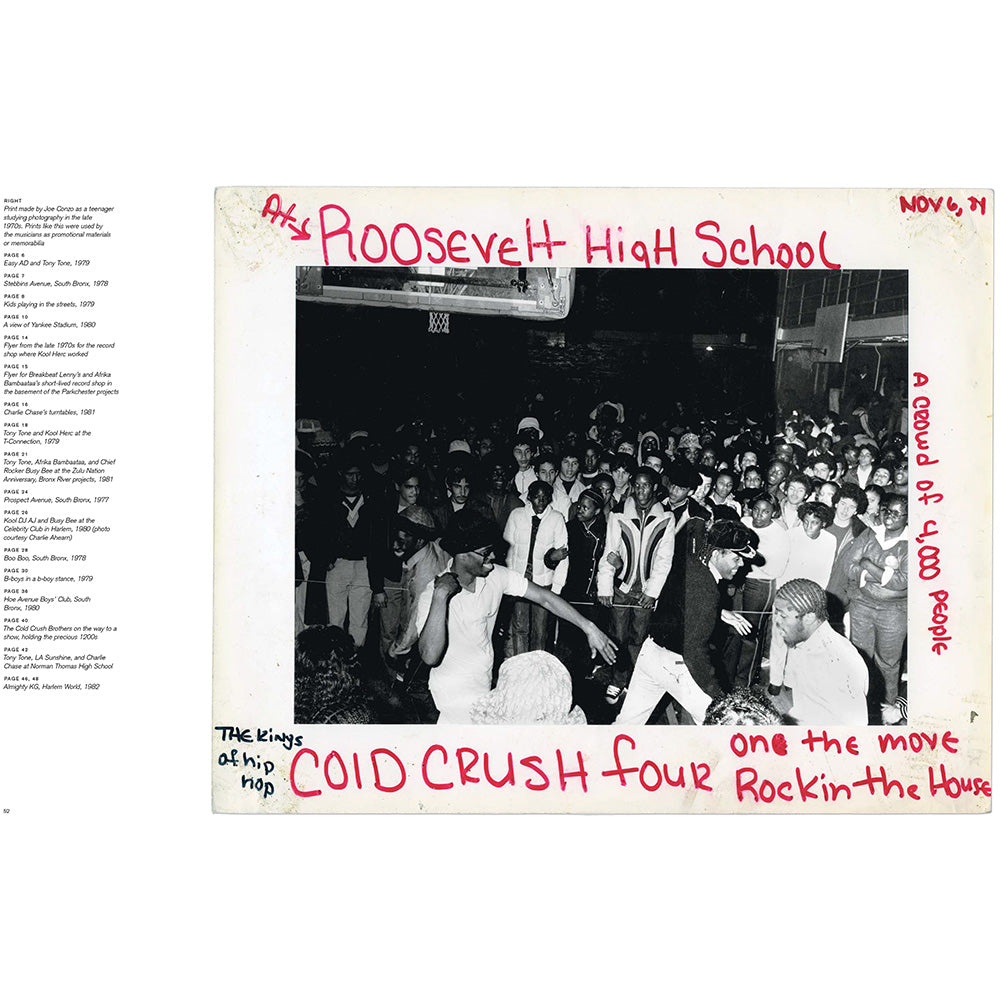 RIGHT
Print made by Joe Conzo as a teenager
studying photography in the late
1970s. Prints like this were used by
the musicians as promotional materials
or memorabilia
PAGE 6
Easy AD and Tony Tone, 1979
PAGE 7
Stebbins Avenue, South Bronx, 1978
PAGE 8
Kids playing in the streets, 1979
PAGE 10
A view of Yankee Stadium, 1980
PAGE 14
Flyer from the late 1970s for the record
shop where Kool Herc worked
PAGE 15
Flyer for Breakbeat Lenny's and Afrika
Bambaataa's short-lived record shop in
the basement of the Parkchester projects
PAGE 16
Charlie Chase's turntables, 1981
PAGE 18
Tony Tone and Kool Herc at the
T-Connection, 1979
PAGE 21
Tony Tone, Afrika Bambaataa, and Chief
Rocker Busy Bee at the Zulu Nation
Anniversary, Bronx River projects, 1981
PAGE 24
Prospect Avenue, South Bronx, 1977
PAGE 26
Kool DJ AJ and Busy Bee at the
Celebrity Club in Harlem, 1980 (photo
courtesy Charlie Ahearn)
PAGE 28
Boo Boo, South Bronx, 1978
PAGE 30
B-boys in a b-boy stance, 1979
PAGE 36
Hoe Avenue Boys' Club, South
Bronx, 1980
PAGE 40
The Cold Crush Brothers on the way to a
show, holding the precious 1200s
PAGE 42
Tony Tone, LA Sunshine, and Charlie
Chase at Norman Thomas High School
PAGE 46, 48
Almighty KG, Harlem World, 1982
52
At
ROOSEVElt HigH School
NOV 6,
A CROWD of 4,000 PEOPlE
THE Kings
of hip
hop
COlD CRUSH fouR
one the move
Rockin the House